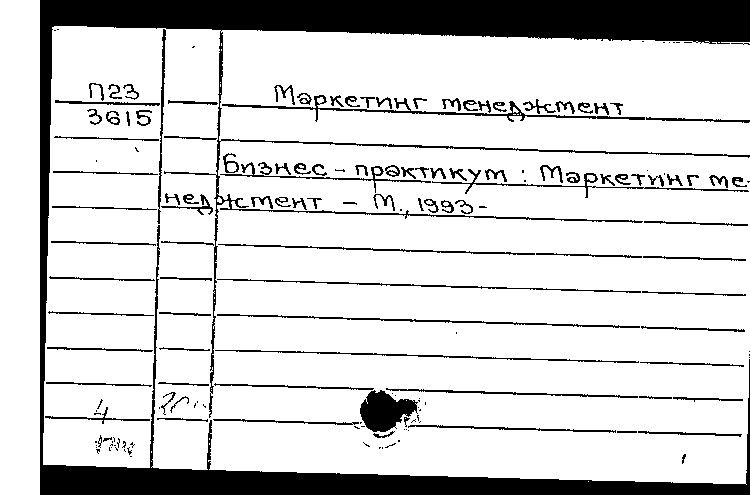 П23 Маркетинг менеджмент
3615
Бизнес - практикум : Маркетинг ме-
неджмент - М., 1993-
4